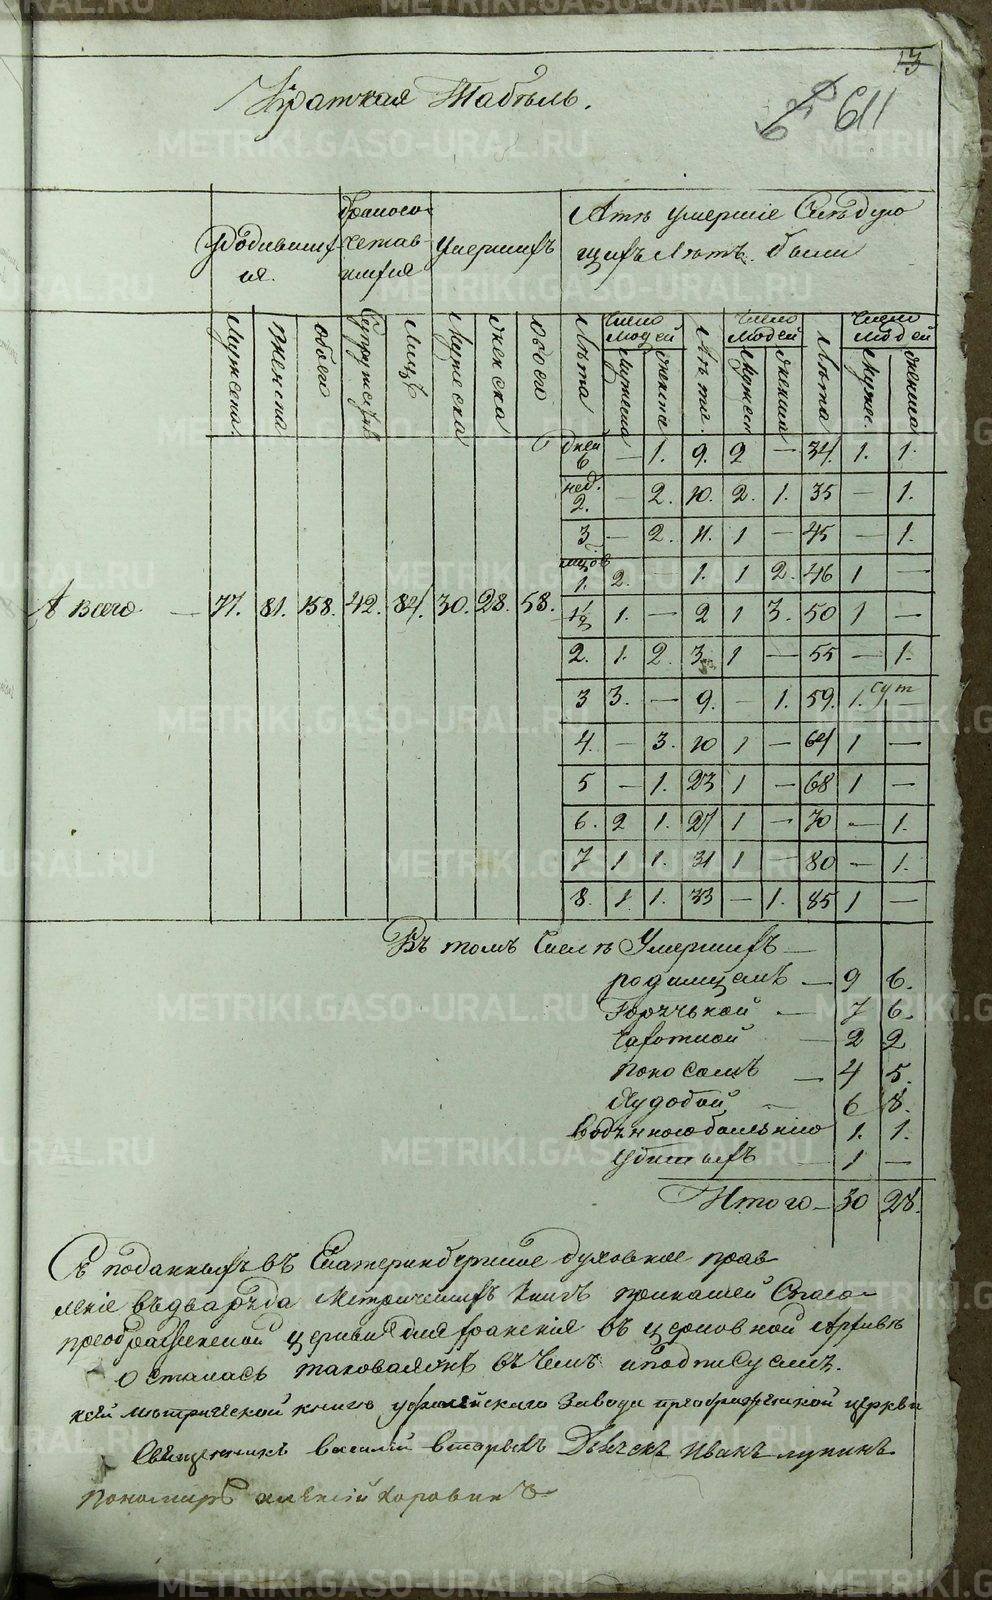 13
Краткая Табѣль.
611
Родивших
ся.
бракосо-
четав
шихся
Умерших
Лѣтъ умершіе Слѣдую
щихъ Лѣтъ были
Мужеска.
Женска
Обоего
Супружествъ
Лицъ
Мужеска
Женска
Обоего
Лѣта
Число людей
Мужеска
Женска
Лѣта.
Число людей
Мужеск
Женска
Лѣта
Число людей
Мужес.
Женска
дней 6 — 1. 9. 2 — 34. 1. 1.
нед. 2. — 2. 10. 2. 1. 35 — 1.
3 — 2. 11. 1 — 45 — 1.
1. 2. — 1. 1 2. 46 1 —
А всего — 77. 81. 158. 42. 84. 30. 28. 58. 1½ 1. — 2 1 3. 50 1 —
2. 1. 2. 3. 1 — 55 — 1.
3 3. — 9. — 1. 59. 1. —
4. — 3. 10 1 — 64 1 —
5 — 1. 23 1 — 68 1 —
6. 2 1. 27 1 — 70 — 1.
7 1 1. 31 1 — 80 — 1.
8. 1 1. 33 — 1. 85 1 —
Въ томъ числѣ Умершихъ —
родимцемъ — 9 6.
Горячькой — 7 6.
Чахотной — 2 2
Поносомъ — 4 5.
Худобой — 6 8.
водяною болѣзнію 1. 1.
Убитыхъ — 1 —
Итого — 30 28.
Съ поданныхъ въ Екатеринбургское духовное прав
леніе
Метрическихъ Книгъ
преображенской церкви для храненія въ церковной Архивѣ
осталась таковая въ чемъ и подписуемъ.
къ сей метрической книге уфалейскаго Завода преображенской церкви
Священникъ василій вторыхъ Дьячекъ Иванъ лупинъ
Пономарь алексій Коровинъ
METRIKI.GASO-URAL.RU